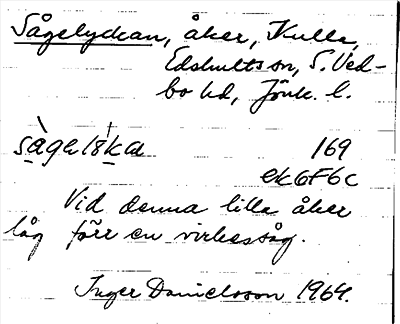 Sågelyckan, åker, Kulla,
Edshults sn, S. Ved-
bo hd, Jönk. l.
169
ek6F6c
Vid denna lilla åker
låg förr en virkessåg.
Inger Danielsson 1964.